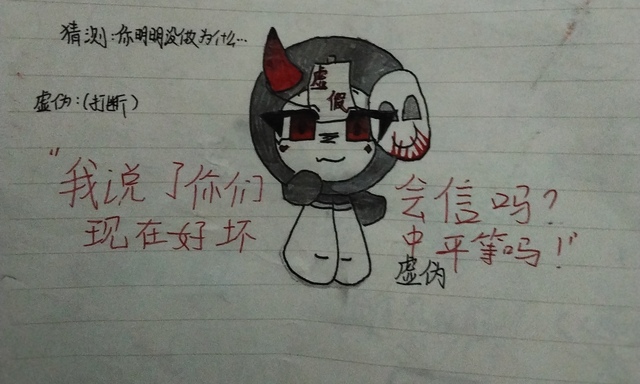 猜测:你明明没做为什么…
虚伪:(打断)
虚
假
"我说了你们会信吗?
现在好坏中平等吗!"
虚伪